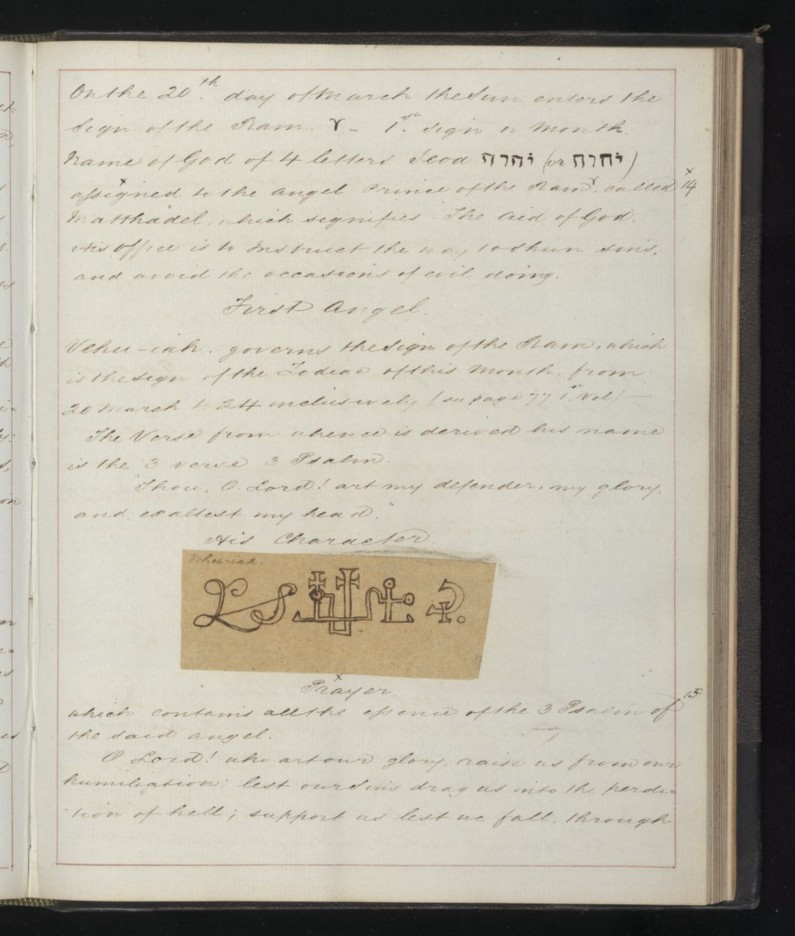 On the 20th. day of March the Sun enters the
Sign of the Ram. ♈ - 1st. sign or Month.
Name of God of 4 letters Jeod יהוה (or יהוה)
assigned to the Angel Prince of the Ram. called 14
which signifies The Aid of God.
His office is to Instruct the way to shun sins,
and avoid the occasions of evil doing.
First Angel.
Vehu-iah. governs the Sign of the Ram, which
is the Sign of the Zodiac of this Month, from
20 March to 24 inclusively (see page 77 1st Vol) —
The Verse from whence is derived his name
is the 3 verse 3 Psalm.
"Thou, O Lord! art my defender, my glory,
and exaltest my head."
His Character
Vehu-iah.
Prayer.
which contains all the essence of the 3 Psalm of 15
the said angel.
O Lord! who art our glory, raise us from our
humiliation; lest our Sins drag us into the perdi-
tion of hell; support us lest we fall through